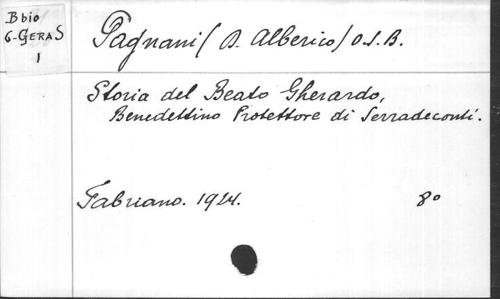 B bio
6-GERAS
1
Pagnani (D. Alberico) O.S.B.
Storia del Beato Gherardo,
Benedettino Protettore di Serradeconti.
Fabriano. 1924. 8º